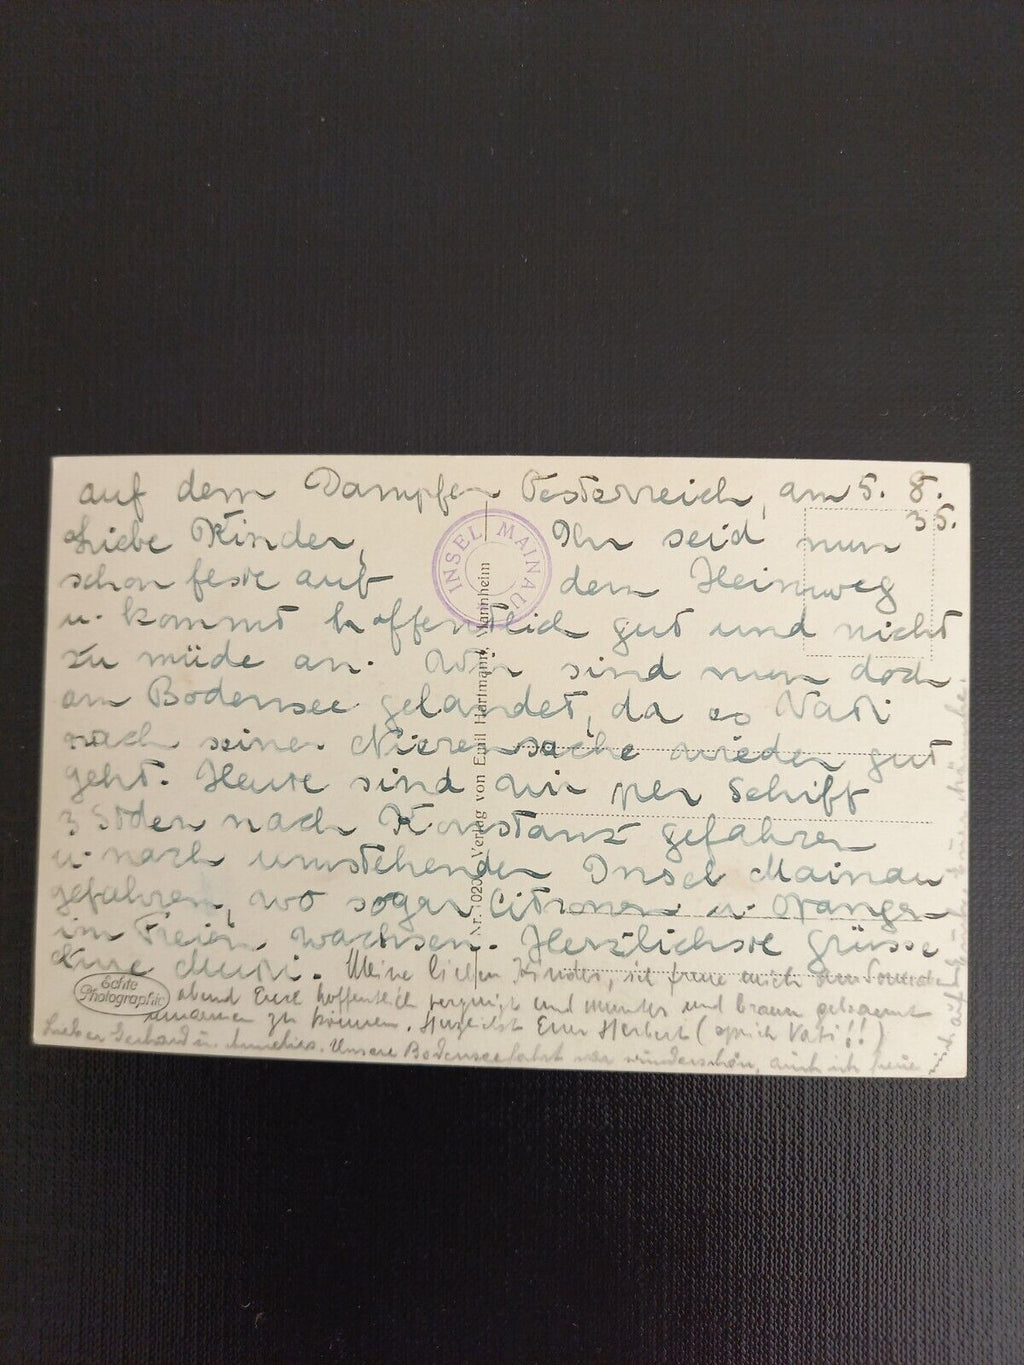 auf dem Dampfer Oesterreich, am 5. 8.
35.
Liebe Kinder, Ihr seid nun
schon feste auf dem Heimweg
u. kommt hoffentlich gut und nicht
zu müde an. Wir sind nun doch
am Bodensee gelandet, da es Vati
nach seiner Nierensache wieder gut
geht. Heute sind wir per Schiff
3 Stden nach Konstanz gefahren
u. nach umstehender Insel Mainau
gefahren, wo sogar Citronen u. Orangen
im Freien wachsen. Herzlichste Grüsse
Eure Mutti. Meine lieben Kinder, ich freue mich
abend Euch hoffentlich vergnügt und munter und braun gebrannt
zu können. Herzlichst Euer Herbert (sprich Vati!!)
Lieber Gerhard u. Annelies. Unsere Bodenseefahrt war wunderschön, auch ich freue
mich auf
INSEL MAINAU
Verlag von Emil Hartmann, Mannheim
Echte
Photographie